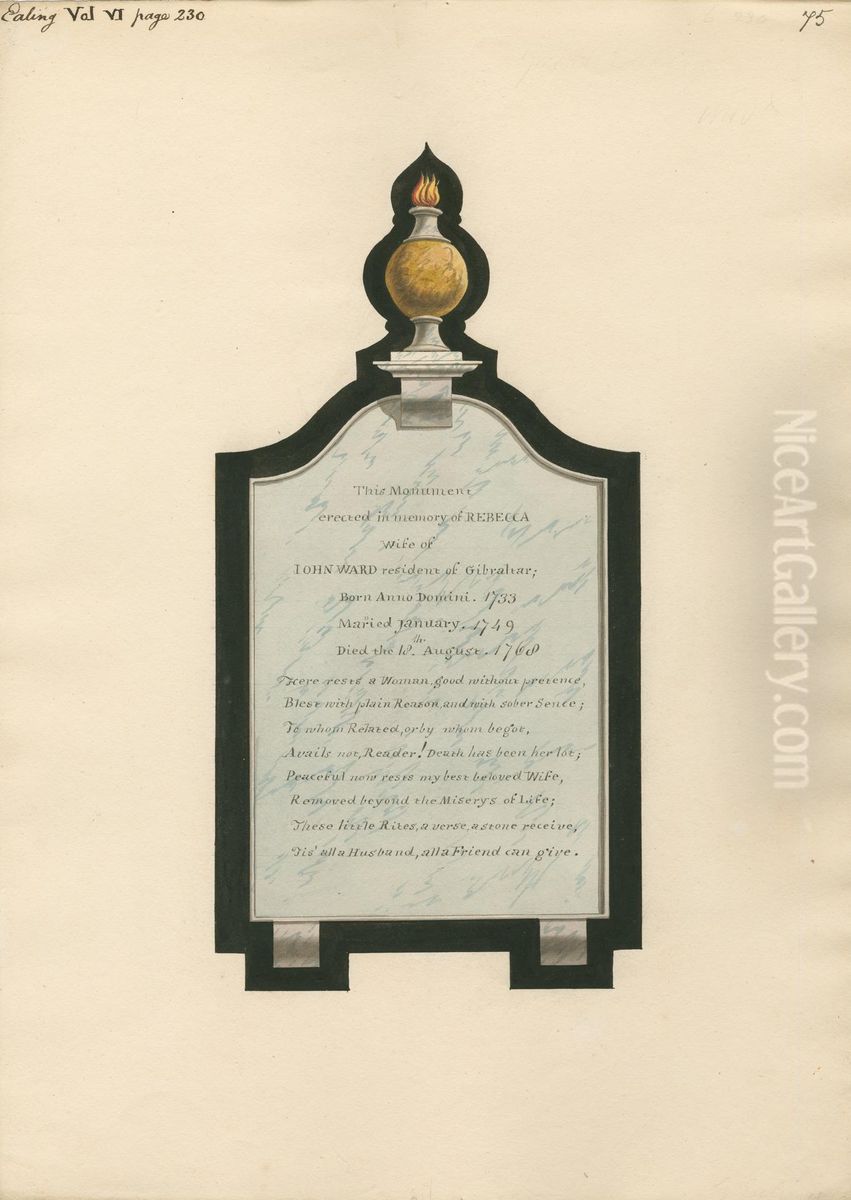 Ealing Vol VI page 230
75
This Monument
erected in memory of REBECCA
Wife of
IOHN WARD resident of Gibraltar;
Born Anno Domini. 1733
Maried January. 1749
Died the 18th. August. 1768
Here rests a Woman, good without pretence,
Blest with plain Reason, and with sober Sence;
To whom Related, or by whom begot,
Avails not, Reader! Death has been her lot;
Peaceful now rests my best beloved Wife,
Removed beyond the Miserys of Life;
These little Rites, a verse, a stone receive,
Tis' all a Husband, all a Friend can give.
NiceArtGallery.com